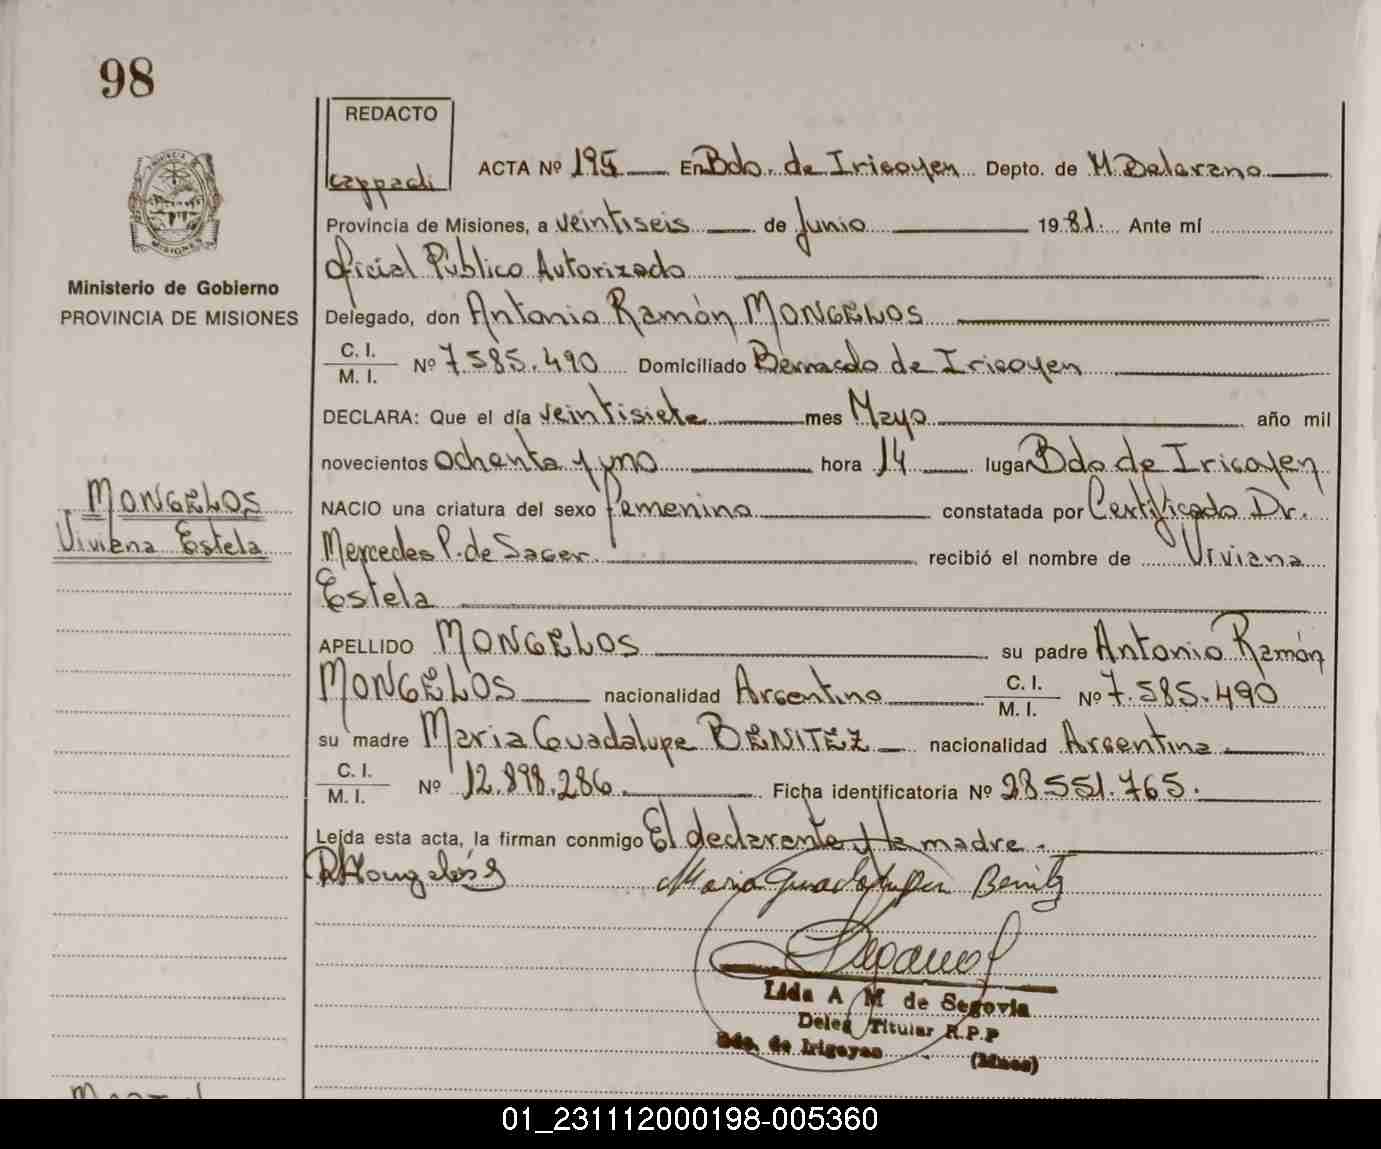 98
REDACTO
cappadi
ACTA Nº 195 En Bdo. de Irigoyen Depto. de M. Belgrano
Provincia de Misiones, a veintiseis de Junio 1981. Ante mí
Oficial Público Autorizado
Ministerio de Gobierno
PROVINCIA DE MISIONES
Delegado, don Antonio Ramón MONGELOS
C. I.
M. I.
Nº 7.585.490 Domiciliado Bernardo de Irigoyen
DECLARA: Que el día veintisiete mes Mayo año mil
novecientos ochenta y uno hora 14 lugar Bdo de Irigoyen
MONGELOS
Viviana Estela
NACIO una criatura del sexo femenino constatada por Certificado Dr.
Mercedes P. de Sager. recibió el nombre de Viviana
Estela
APELLIDO MONGELOS su padre Antonio Ramón
MONGELOS nacionalidad Argentino C. I.
M. I. Nº 7.585.490
su madre Maria Guadalupe BENITEZ nacionalidad Argentina
C. I.
M. I.
Nº 12.898.286 Ficha identificatoria Nº 28.551.765.
Leída esta acta, la firman conmigo El declarante y la madre.
RMongelós Maria Guadalupe Benitz
Lida A M de Segovia
Deleg Titular R.P.P
Bdo. de Irigoyen (Mnes)
01_231112000198-005360